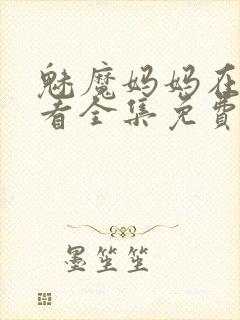 魅魔妈妈在
看全集免费
墨笙笙